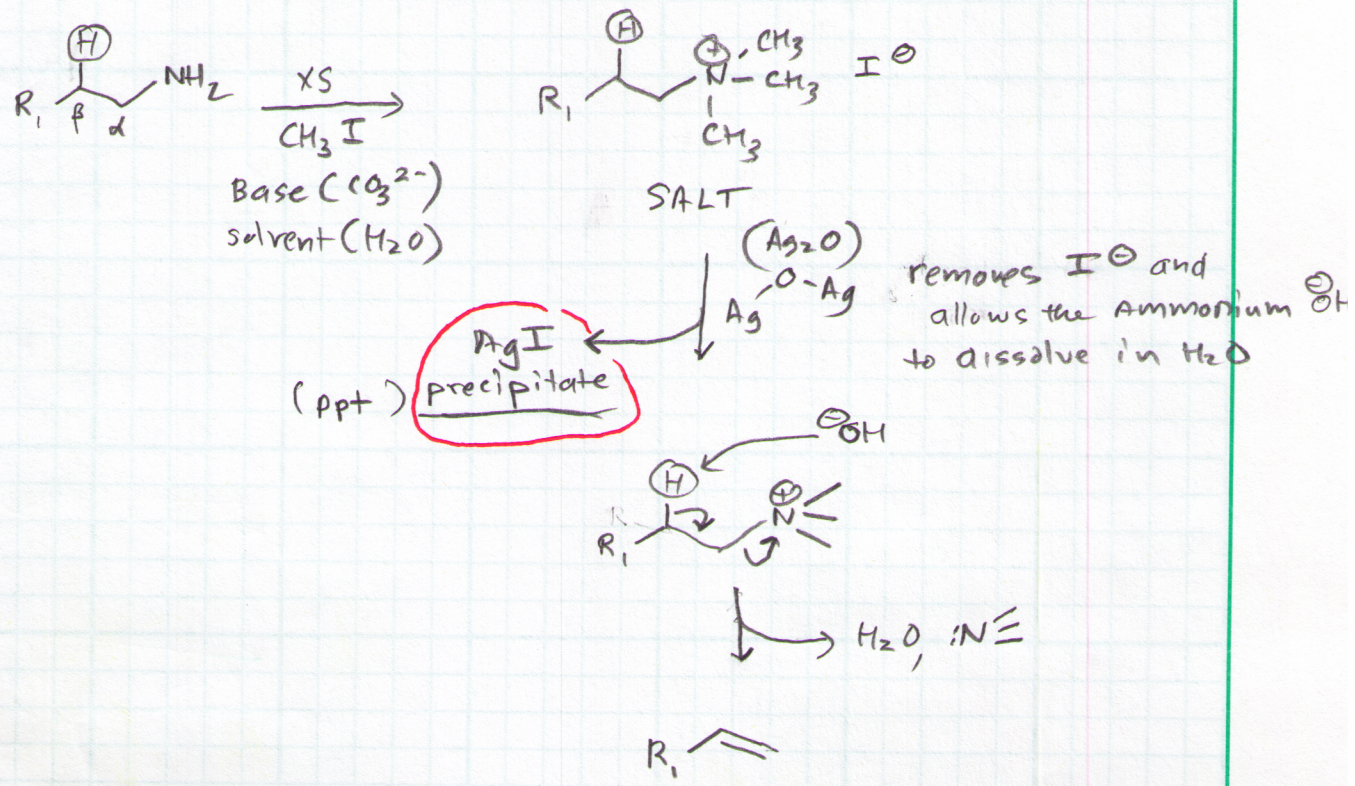 H
R₁ β α NH₂
XS
CH₃I
Base (CO₃²⁻)
solvent (H₂O)
H
R₁ N⊕ CH₃
CH₃
CH₃
I⊖
SALT
(Ag₂O)
Ag O-Ag
removes I⊖ and
allows the Ammonium ⊖OH
to dissolve in H₂O
AgI
(ppt) precipitate
⊖OH
H
R
R₁ N⊕
H₂O, :N
R₁